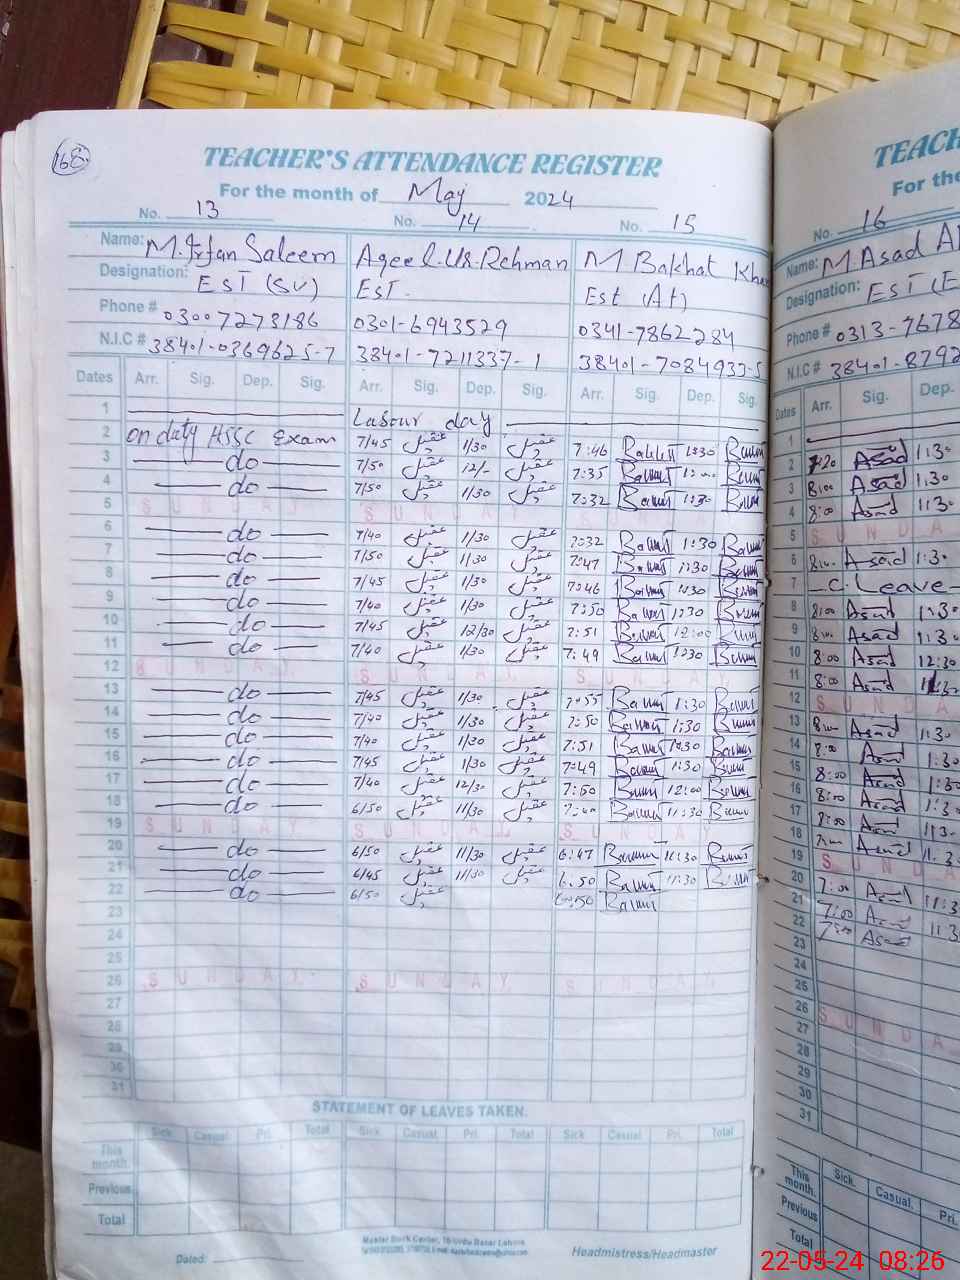 168
TEACHER'S ATTENDANCE REGISTER
For the month of May 2024
No. 13 No. 14 No. 15
Name: M. Irfan Saleem Aqeel.Ur.Rehman M Bakhat Khan
Designation: EST (SV) EST. Est (At)
Phone # 03007273186 0301-6943529 0341-7862284
N.I.C # 38401-0369625-7 38401-7211337-1 38401-7084933-5
Dates Arr. Sig. Dep. Sig. Arr. Sig. Dep. Sig. Arr. Sig. Dep. Sig.
1 Labour day
2 on duty HSSC Exam 7/45 عقیل 1/30 عقیل 7:46 1:30
3 do 7/50 عقیل 12/- عقیل 7:35
4 do 7/50 عقیل 1/30 عقیل 7:32 1:30
5 SUNDAY SUNDAY SUNDAY
6 do 7/40 عقیل 1/30 عقیل 7:32 1:30
7 do 7/50 عقیل 1/30 عقیل 7:47 1:30
8 do 7/45 عقیل 1/30 عقیل 7:46 1:30
9 do 7/40 عقیل 1/30 عقیل 7:50 1:30
10 do 7/45 عقیل 12/30 عقیل 7:51 12:00
11 do 7/40 عقیل 1/30 عقیل 7:49 1:30
12 SUNDAY SUNDAY SUNDAY
13 do 7/45 عقیل 1/30 عقیل 7:55 1:30
14 do 7/40 عقیل 1/30 عقیل 7:50 1:30
15 do 7/40 عقیل 1/30 عقیل 7:51 1:30
16 do 7/45 عقیل 1/30 عقیل 7:49 1:30
17 do 7/40 عقیل 12/30 عقیل 7:50 12:00
18 do 6/50 عقیل 11/30 عقیل 11:30
19 SUNDAY SUNDAY SUNDAY
20 do 6/50 عقیل 11/30 عقیل 6:47 11:30
21 do 6/45 عقیل 11/30 عقیل 6:50 11:30
22 do 6/50 عقیل 6:50
23
24
25
26 SUNDAY SUNDAY SUNDAY
27
28
29
30
31
STATEMENT OF LEAVES TAKEN.
Sick Casual Pri. Total Sick Casual Pri. Total Sick Casual Pri. Total
This month.
Previous
Total
Dated: Headmistress/Headmaster
Master Book Center, 16-Urdu Bazar Lahore
TEACH
For the
No. 16
Name: M Asad Al
Designation: EST (E
Phone # 0313-7678
N.I.C # 38401-8792
Dates Arr. Sig. Dep.
1
2 7:20 Asad 1:30
3 8:00 Asad 1:30
4 8:00 Asad 1:30
5 SUNDA
6 Asad 1:30
7 C. Leave
8 8:00 Asad 1:30
9 Asad 1:30
10 8:00 Asad 12:30
11 8:00 Asad
12 SUNDA
13 Asad 1:30
14 8:00 Asad 1:30
15 8:00 Asad 1:30
16 8:00 Asad 1:30
17 Asad
18 Asad 11:3
19 S
20 7:00 Asad 11:3
21 7:00 Asad 11:3
22 Asad
23
24
25
26 SUNDA
27
28
29
30
31
Sick Casual. Pri.
This month.
Previous
Total
22-05-24 08:26